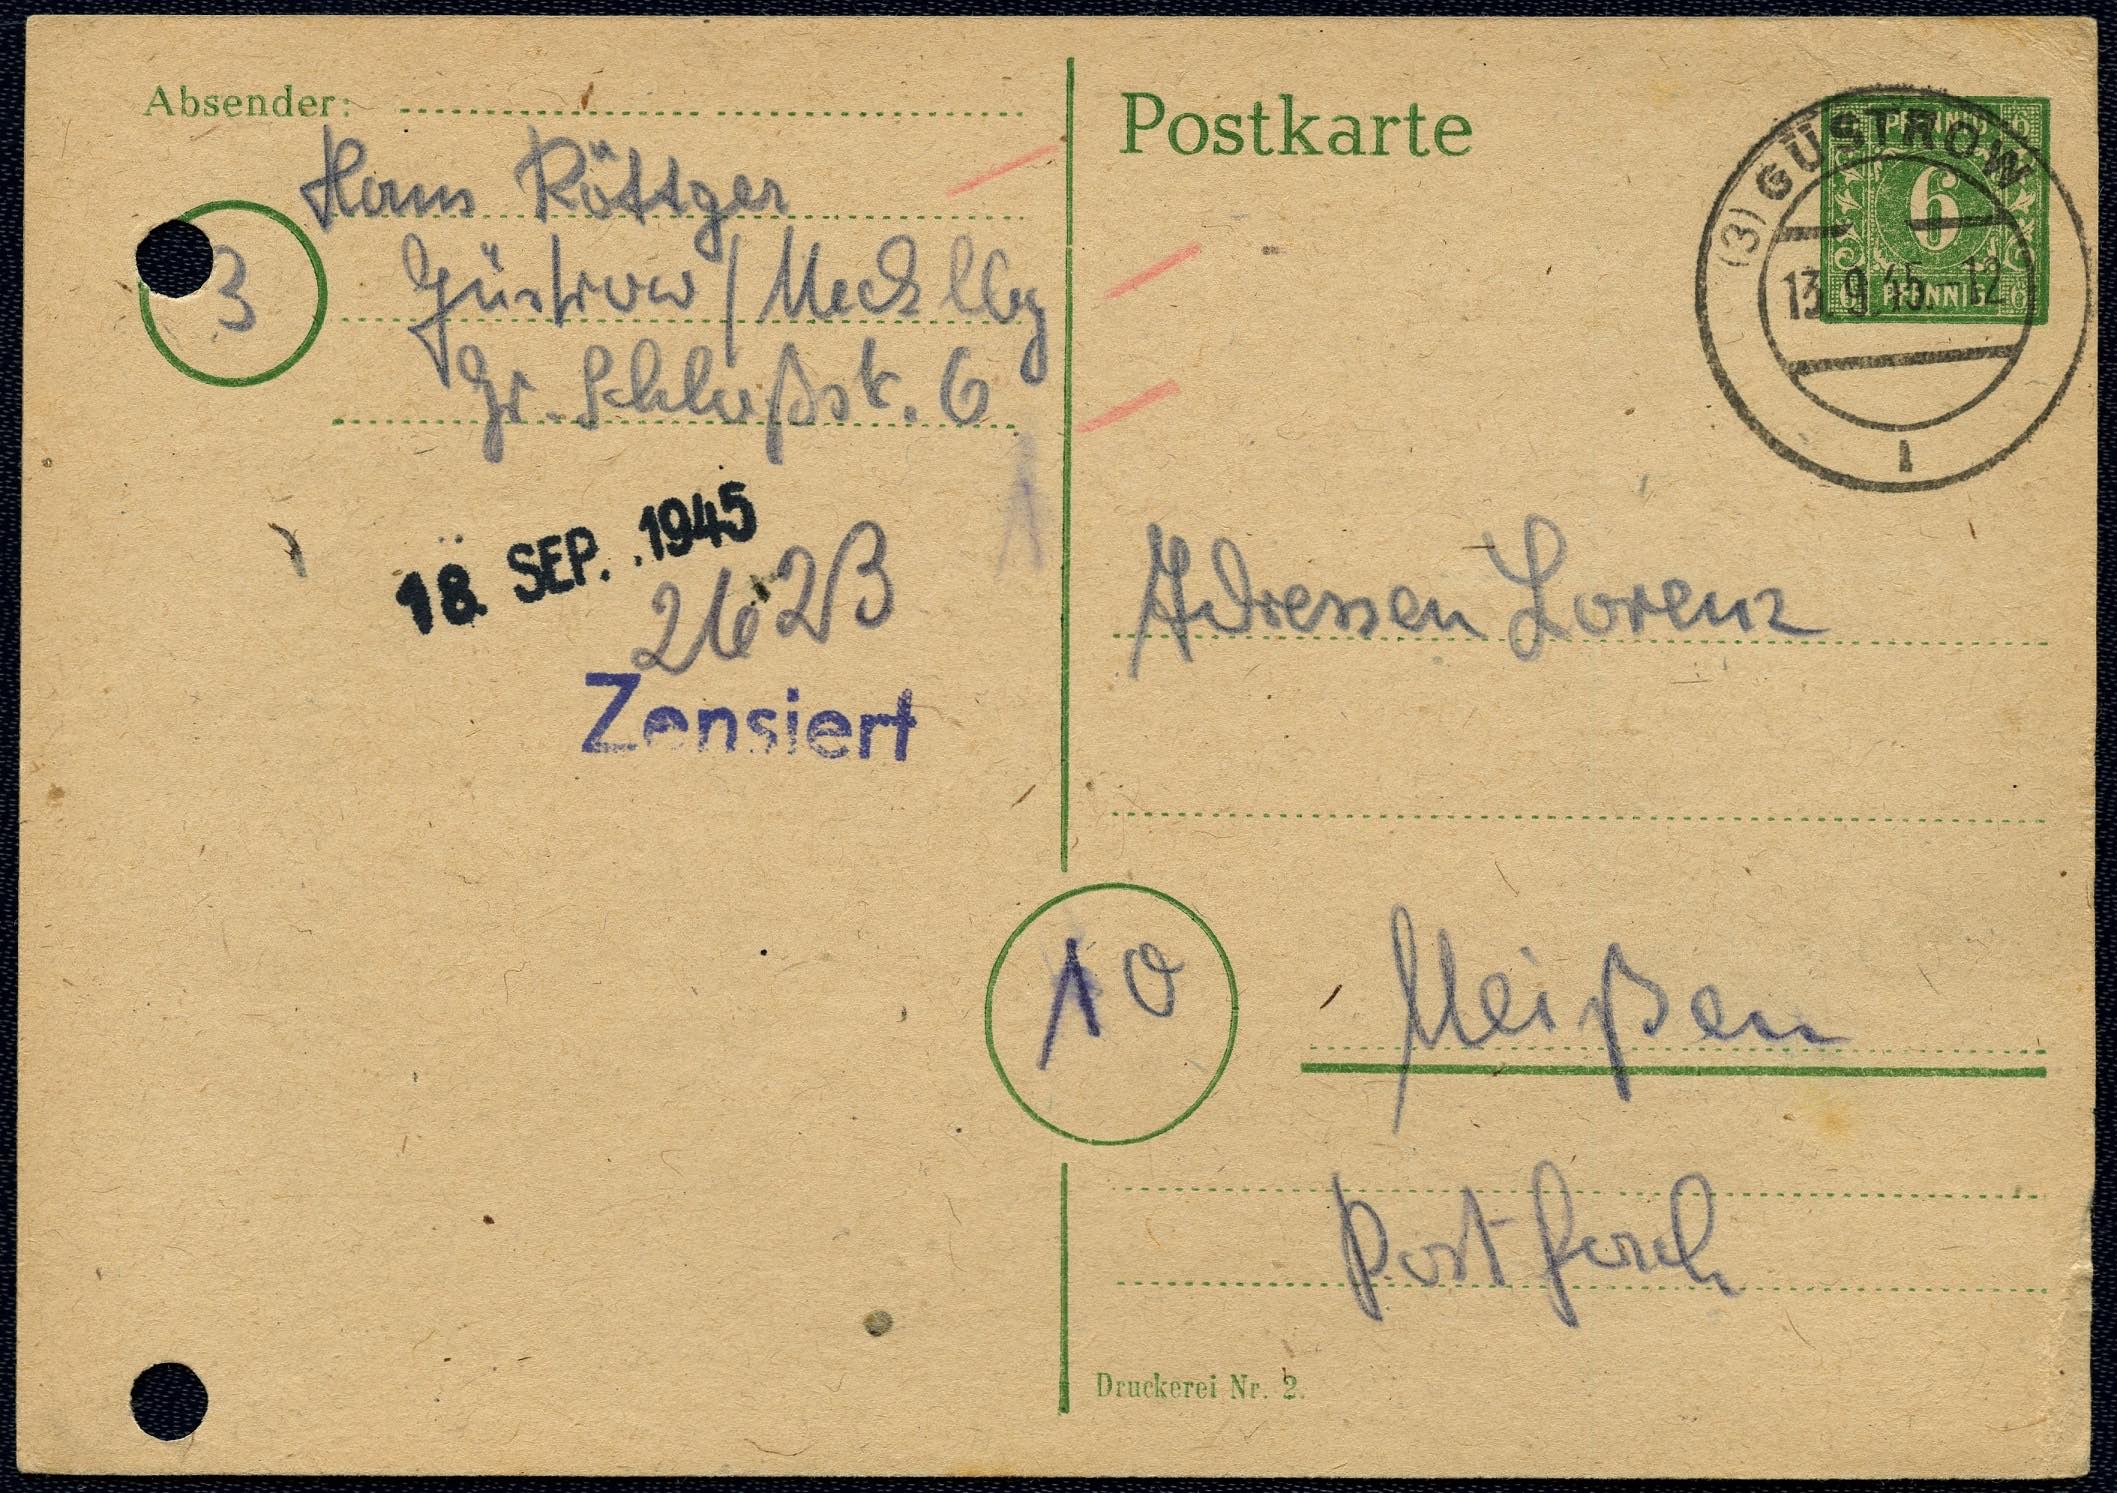 Absender:
Hans Röttger
Güstrow / Mecklbg
Gr. Schloßstr. 6
3
18. SEP. 1945
Zensiert
Postkarte
6 PFENNIG 6
6
6 PFENNIG 6
(3) GÜSTROW
13.9.45. 12
1
Adressen Lorenz
10
Meißen
Postfach
Druckerei Nr. 2.